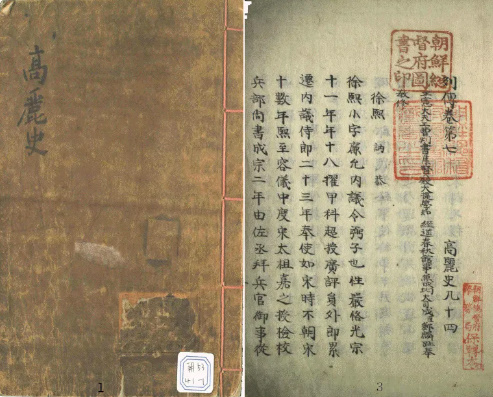 高麗史
1
朝鮮總
督府圖
書之印
列傳卷第七
高麗史九十四
正憲大夫工曹判書集賢殿大提學知
經筵春秋館事兼成均大司成臣鄭麟趾奉
敎修
徐熙
訥
恭
徐熙小字廉允內議令弼子也性嚴恪光宗
十一年年十八擢甲科超授廣評員外郎累
遷內議侍郎二十三年奉使如宋時不朝宋
十數年熙至容儀中度宋太祖嘉之授檢校
兵部尙書成宗二年由佐丞拜兵官御事從
3